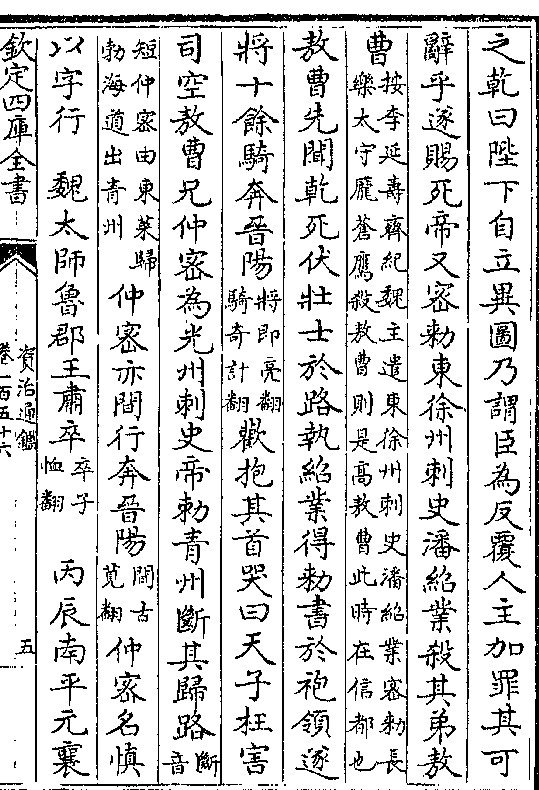 之乾曰陛下自立異圖乃謂臣為反覆人主加罪其可
辭乎遂賜死帝又密勅東徐州刺史潘紹業殺其弟敖
曹
按李延壽齊紀魏主遣東徐州刺史潘紹業密勅長
樂太守龎蒼鷹殺敖曹則是髙敖曹此時在信都也
敖曹先聞乾死伏壯士於路執紹業得勅書於袍領遂
將十餘騎奔晉陽
將即亮翻
騎奇計翻
歡抱其首哭曰天子枉害
司空敖曹兄仲密為光州刺史帝勅青州斷其歸路
斷
音
短仲密由東萊歸
勃海道出青州
仲密亦間行奔晉陽
間古
莧翻
仲密名慎
以字行
魏太師魯郡王肅卒
卒子
恤翻
丙辰南平元襄
欽定四庫全書
資治通鑑
卷一百五十六
五